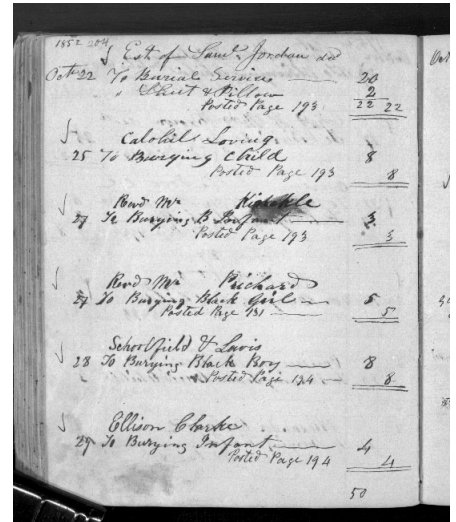 1852 204
Est of Saml. Jordan dec
Oct 22 To Burial Service 20
" Shirt & Pillow 2
Posted Page 193 22 22
Loving
25 To Burying Child 8
Posted Page 193 8
Revd Mr
27 To Burying B Infant 3
Posted Page 193 3
Revd Mr Prichard
27 To Burying Black Girl 5
Posted Page 5
Schoolfield &
28 To Burying Black Boy 8
Posted Page 134 8
Ellison Clarke
29 To Burying Infant 4
Posted Page 194 4
50